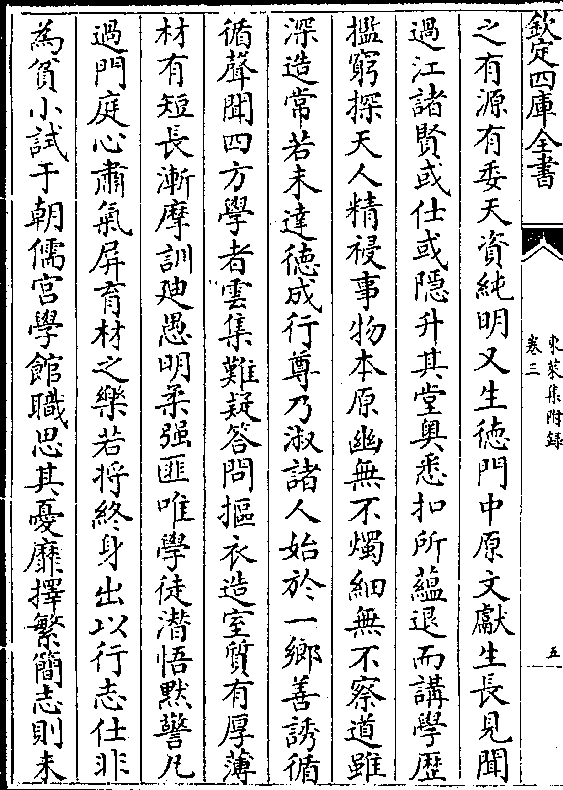 欽定四庫全書
東萊集附録
卷三
五
之有源有委天資純明又生徳門中原文獻生長見聞
過江諸賢或仕或隱升其堂奥悉扣所藴退而講學歴
檻窮探天人精祲事物本原幽無不燭細無不察道雖
深造常若未達徳成行尊乃淑諸人始於一鄉善誘循
循聲聞四方學者雲集難疑答問摳衣造室質有厚薄
材有短長漸摩訓廸愚明柔强匪唯學徒潛悟黙警凡
過門庭心肅氣屏育材之樂若將終身出以行志仕非
為貧小試于朝儒宫學館職思其憂靡擇繁簡志則未